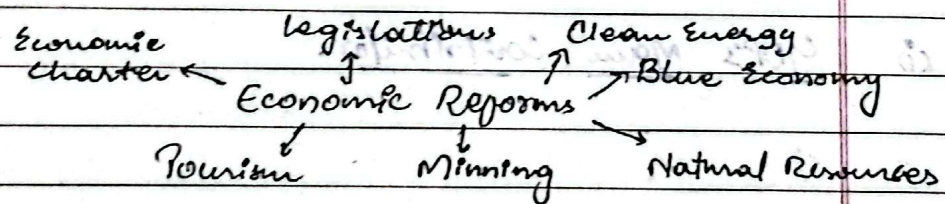 Economic Legislations Clean Energy
Charter Blue Economy
Economic Reforms
Tourism Minning Natural Resources